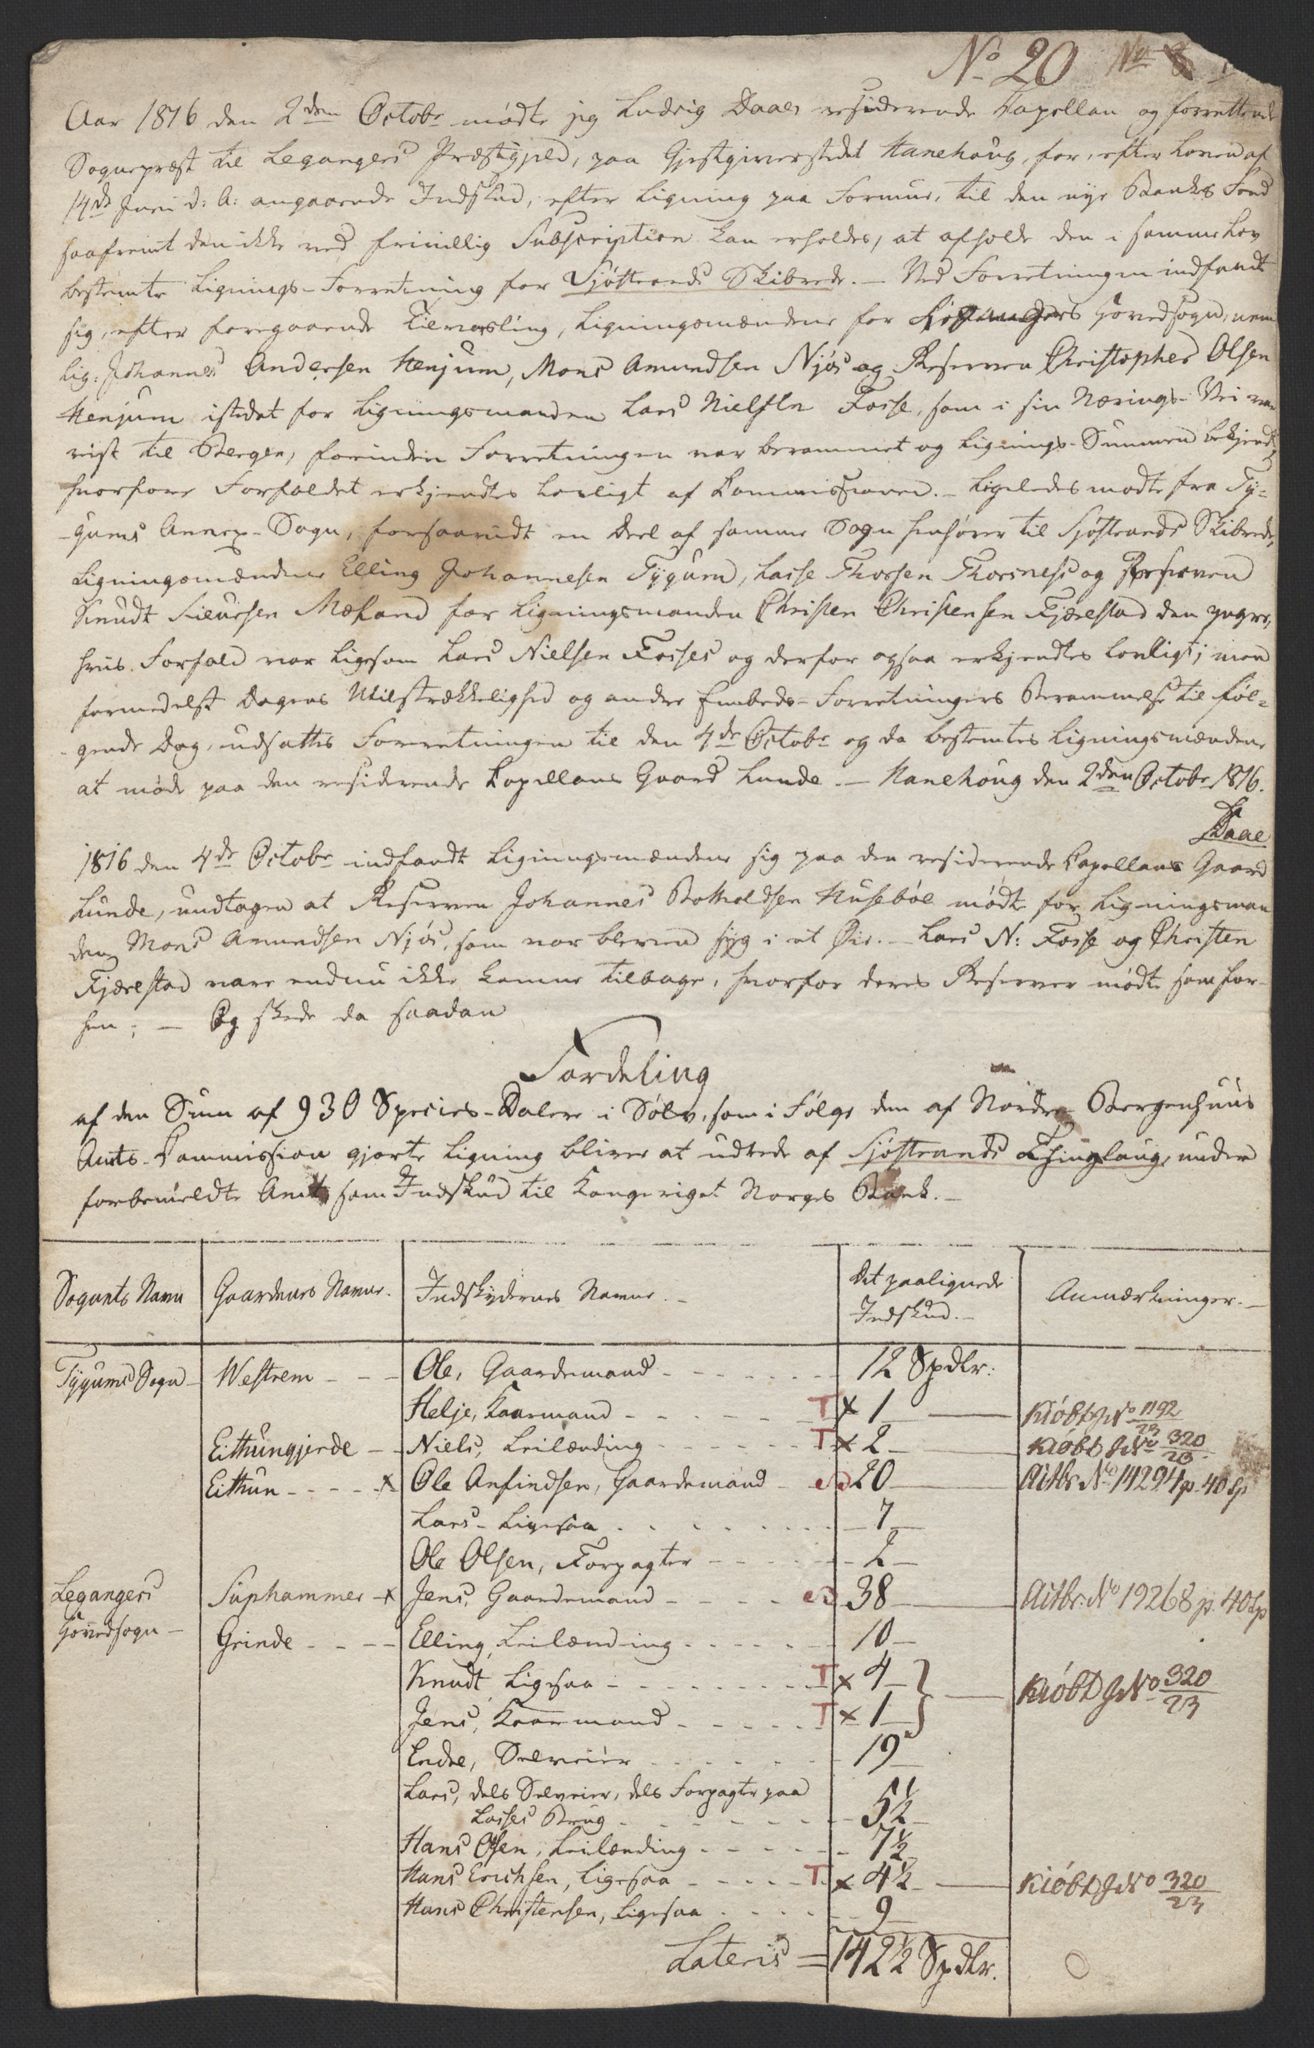 No 20 No 8
Aar 1816 den 2den Octobr mødte jeg Ludvig Daae residerende Capellan og forrettende
Sognepræst til Legangers Præstegjeld, paa Gjestgiverstedet Hanehoug, for, efter Loven af
14de Juni d: A: angaaende Indskud, efter Ligning paa Formue, til den nye Banks Fond
saafremt den ikke ved frivillig Subscription kan erholdes, at afholde den i samme Lov
bestemte Lignings-Forretning for Sjøstrands Skibrede. - Ved Forretningen indfandt
sig, efter foregaaende Tilvarsling, Ligningsmændene for Legangers Hovedsogn, nem
lig: Johannes Andersen Henjum, Mons Amundsen Njøs og Reserven Christopher Olsen
Henjum istedet for Ligningsmanden Lars Nielsen Fosse, som i sin Nærings-Vei var
reist til Bergen, forinden Forretningen var berammet og Lignings-Summen bekjendt,
hvorfore Forfaldet erkjendtes lovligt af Commissionen. - Ligeledes mødte fra Ty-
-gums Annex-Sogn, forsaavidt en Deel af samme Sogn henhører til Sjøstrands Skibrede,
Ligningsmændene Elling Johannesen Tygum, Lasse Thorsen Thorsnes og Reserven
Knudt Sieursen Mæland for Ligningsmanden Christen Christensen Fjærestad den yngre,
hvis Forfald var ligesom Lars Nielsen Fosses og derfor ogsaa erkjendtes lovligt; men
formedelst Dagens Utilstrækkelighed og andre Embeds-Forretningers Berammelse til føl-
-gende Dag, udsattes Forretningen til den 4de Octobr og da bestemtes Ligningsmændene
at møde paa den residerende Capellans Gaard Lunde. - Hanehoug den 2den Octobr 1816.
Daae
1816 den 4de Octobr indfandt Ligningsmændene sig paa den residerende Capellans Gaard
Lunde, undtagen at Reserven Johannes Botholdsen Husebøe mødte for Ligningsman
den Mons Amundsen Njøs, som var bleven syg i et Øie. - Lars N: Fosse og Christen
Fjærestad vare endnu ikke komne tilbage, hvorfor deres Reserver mødte som for-
hen; - Og skede da saadan
Fordeling
af den Sum af 930 Species-Daler i Sølv, som i Følge den af Nordre Bergenhuus
Amts-Commission gjorte Ligning bliver at udrede af Sjøstrands Thinglaug, under
forbemeldte Amt, som Indskud til Kongeriget Norges Bank. -
Sognets Navn Gaardenes Navne. Indskydernes Navne. - Det paalignede Indskud. - Anmærkninger. -
Tygums Sogn - Westrem - - - Ole, Gaardemand - - - - - - 12 Spdlr:
Helje, Kaarmand - - - - T x 1 - Kiøbt J No 1192/23
Eithungjerde - - Niels, Leilænding - - - - T x 2 - Kiøbt J No 320/23
Eithun - - - - x Ole Anfindsen, Gaardemand - 20 - Actbr. No 14294 p. 40 Sp
Lars - Ligesaa - - - - - 7 -
Ole Olsen, Forpagter - - - - - 2 -
Legangers Suphammer - x Jens, Gaardemand - - - - 38 - Actbr. No 19268 p. 40 Sp
Hovedsogn - Grinde - - - - Elling, Leilænding - - - - - 10 -
Knudt, Ligesaa - - - - - T x 4 -
Jens, Kaarmand - - - - T x 1 - Kiøbt J No 320/23
Endre, Selveier - - - - - 19 -
Lars, dels Selveier, dels Forpagter paa
Lasses Brug - - - - - 5½ -
Hans Olsen, Leilænding - - - - 7½ -
Hans Erichsen, Ligesaa - - - - T x 4½ - Kiøbt J No 320/23
Hans Christensen, Ligesaa - - - - 9 -
Lateris = 142½ Spdlr.